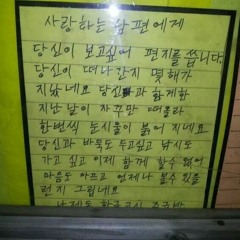 사랑하는 남편에게
당신이 보고싶어 편지를 씁니다
당신이 떠나간지 몇해가
지났네요 당신과 함께한
지난 날이 자꾸만 떠올라
한번씩 눈시울이 붉어 지네요
당신과 바둑도 두고싶고 낚시도
가고 싶고 이제 함께 할수 없어
마음도 아프고 언제나 볼수 있을
런지 그립네요